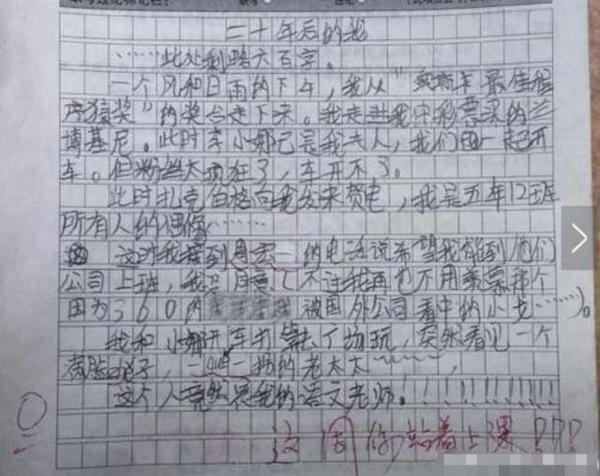 二十年后的我
……此处剩略六百字。
一个风和日雨的下午，我从“奥斯卡最佳程
序猿奖”的奖台走下来。我走进我中彩票买的兰
博基尼。此时李小娜已是我夫人，我们一起开
车。但粉丝太疯狂了，车开不了。
此时扎克伯格向我发来贺电，我是五年12班
所有人的偶像……
这时我接到周宏一的电话说希望我能到他们
公司上班，我
因为360的 被国外公司看中的小龙……)。
我和小娜开车去 广场玩，突然看见一个
子，一 的老太太……，
这个人竟然是我的语文老师！！！！！！！！！！
这周你站着上课！！！